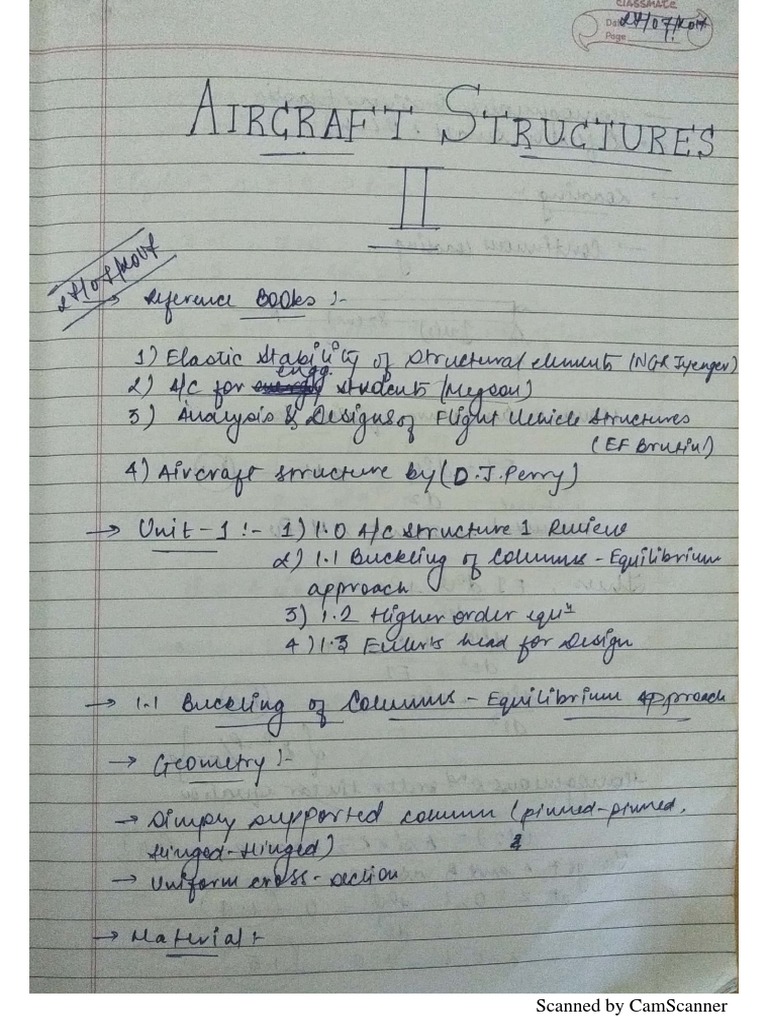 classmate
Date 27/07/2017
Page
AIRCRAFT STRUCTURES
II
27/07/2017
→ Reference Books :-
1) Elastic Stability of Structural elements (NGR Iyenger)
engg.
2) A/C for students (Megson)
3) Analysis & Designs of Flight Vehicle Structures
(EF Bruhin)
4) Aircraft structure by (D.J. Perry)
→ Unit-1 :- 1) 1.0 A/C Structure 1 Review
2) 1.1 Buckling of Columns - Equilibrium
approach
3) 1.2 Higher order equⁿ
4) 1.3 Euler's head for Design
→ 1.1 Buckling of Columns - Equilibrium Approach
→ Geometry :-
→ Simply supported column (pinned-pinned,
Hinged-Hinged)
→ Uniform cross-section
→ Material :-
Scanned by CamScanner